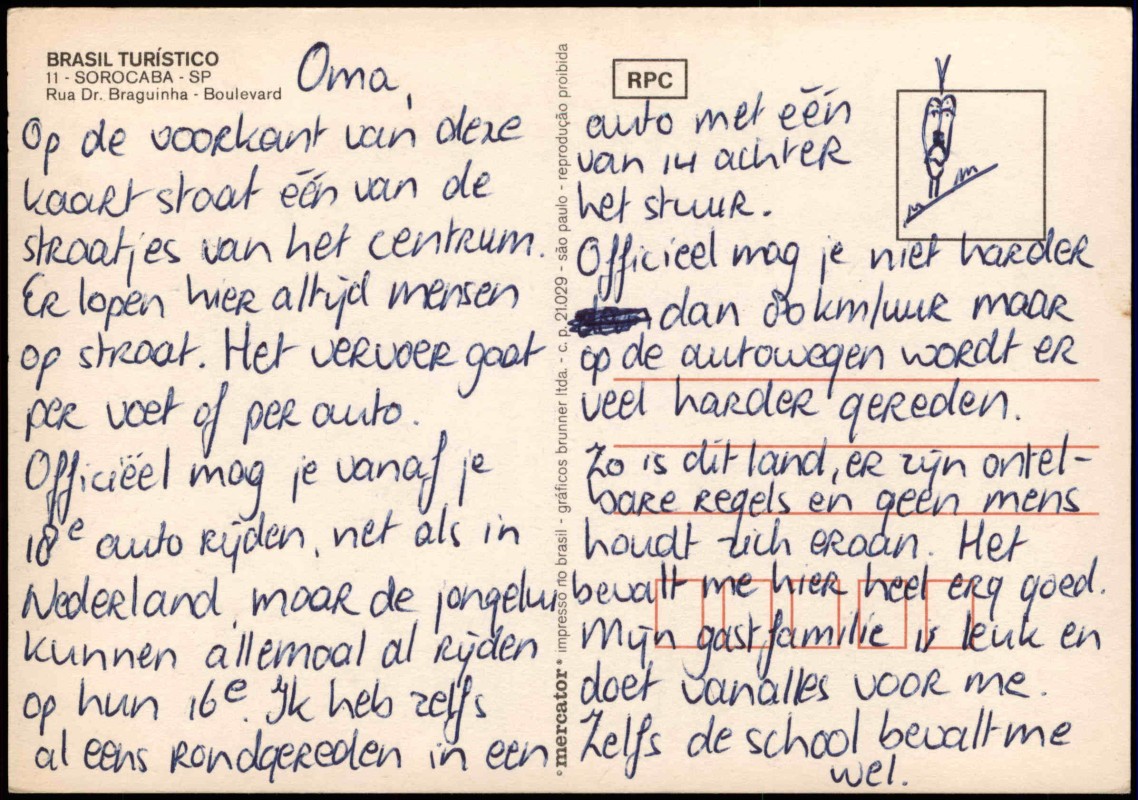 BRASIL TURÍSTICO
11 - SOROCABA - SP
Rua Dr. Braguinha - Boulevard
Oma,
Op de voorkant van deze
kaart staat één van de
straatjes van het centrum.
Er lopen hier altijd mensen
op straat. Het vervoer gaat
per voet of per auto.
Officiëel mag je vanaf je
18e auto rijden, net als in
Nederland, maar de jongelui
kunnen allemaal al rijden
op hun 16e. Ik heb zelfs
al eens rondgereden in een
© mercator ® impresso no brasil - gráficos brunner ltda. - c. p. 21.029 - são paulo - reprodução proibida
RPC
auto met één
van 14 achter
het stuur.
Officieel mag je niet harder
dan 80 km/uur maar
op de autowegen wordt er
veel harder gereden.
Zo is dit land, er zijn ontel-
bare regels en geen mens
houdt zich eraan. Het
bevalt me hier heel erg goed.
Mijn gastfamilie is leuk en
doet vanalles voor me.
Zelfs de school bevalt me
wel.